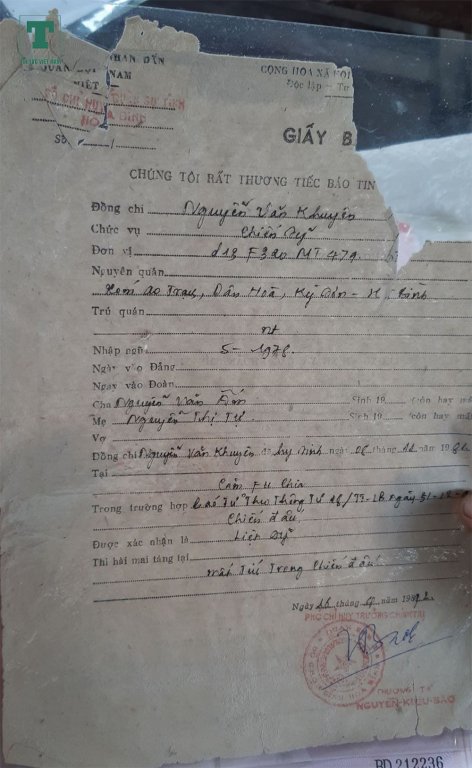 T
NHÂN DÂN
CỘNG HÒA XÃ HỘI
VIỆT NAM
Độc lập - Tự
BỘ CHỈ HUY QUÂN SỰ TỈNH
HÒA BÌNH
Số
GIẤY B
CHÚNG TÔI RẤT THƯƠNG TIẾC BÁO TIN
Đồng chí Nguyễn Văn Khuyên
Chức vụ Chiến sỹ
Đơn vị d13 F320 MT 479
Nguyên quán
Dân Hoà, Kỳ Sơn - H. Bình
Trú quán
nt
Nhập ngũ 5 - 1978
Ngày vào Đảng
Ngày vào Đoàn
Cha Nguyễn Văn Sinh 19 (còn hay mất
Mẹ Nguyễn Thị Tư Sinh 19 (còn hay mất
Vợ
Đồng chí Nguyễn Văn Khuyên đã hy sinh ngày 08 tháng năm 198
Tại
Căm Pu Chia
Trong trường hợp Báo Tử Theo Thông Tư ngày 31-12-
Chiến đấu
Được xác nhận là Liệt sỹ
Thi hài mai táng tại
mất Tích Trong Chiến đấu
Ngày tháng năm 19
PHÓ CHỈ HUY TRƯỞNG CHÍNH TRỊ
THƯỢNG TÁ
NGUYỄN-KIỀU-BÀO
BD 212236